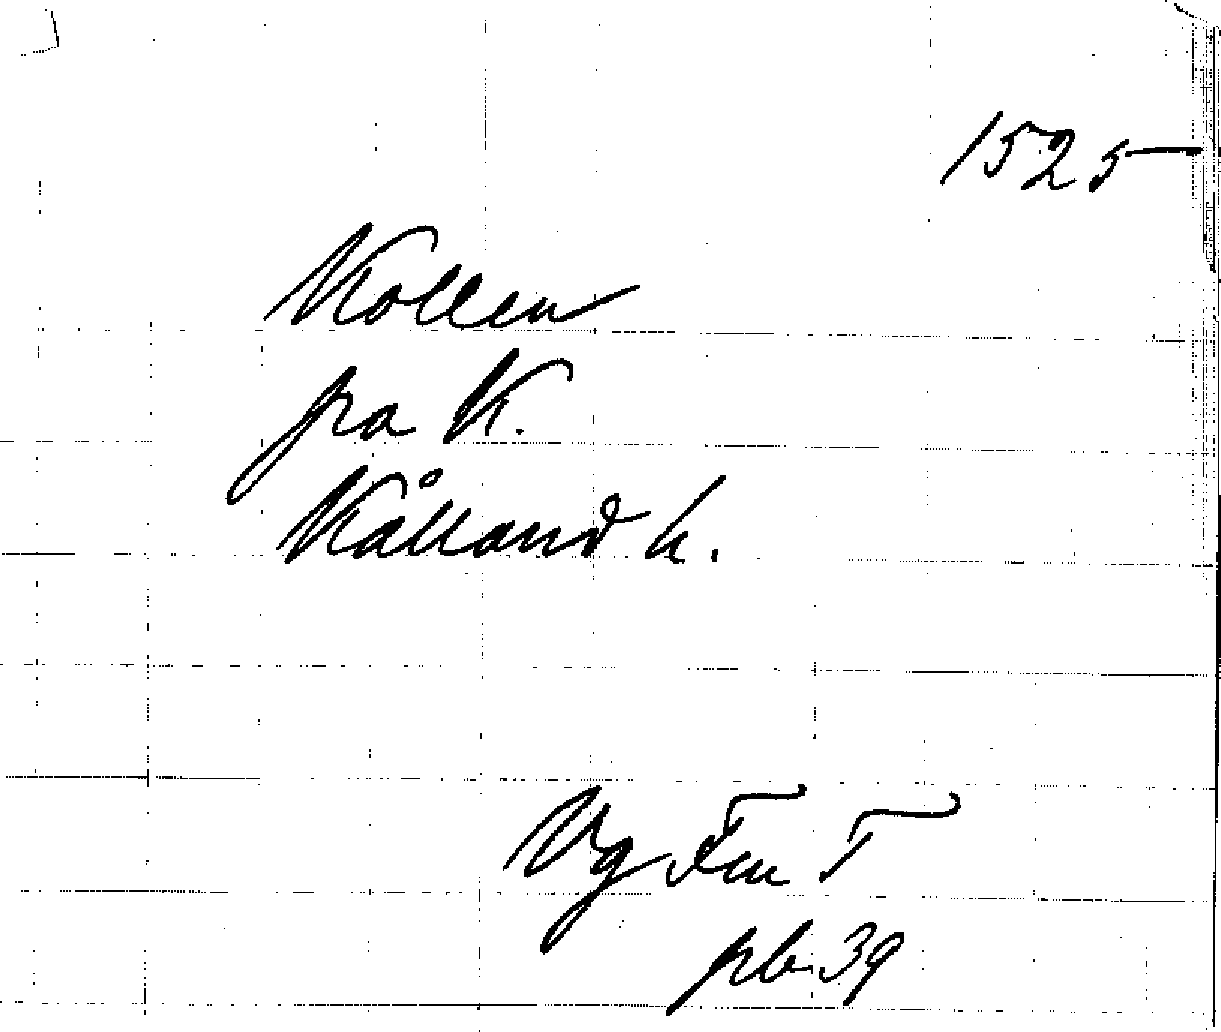 1525
Kollen
fra K.
Kålland h.
Vg Fm T
pb 39